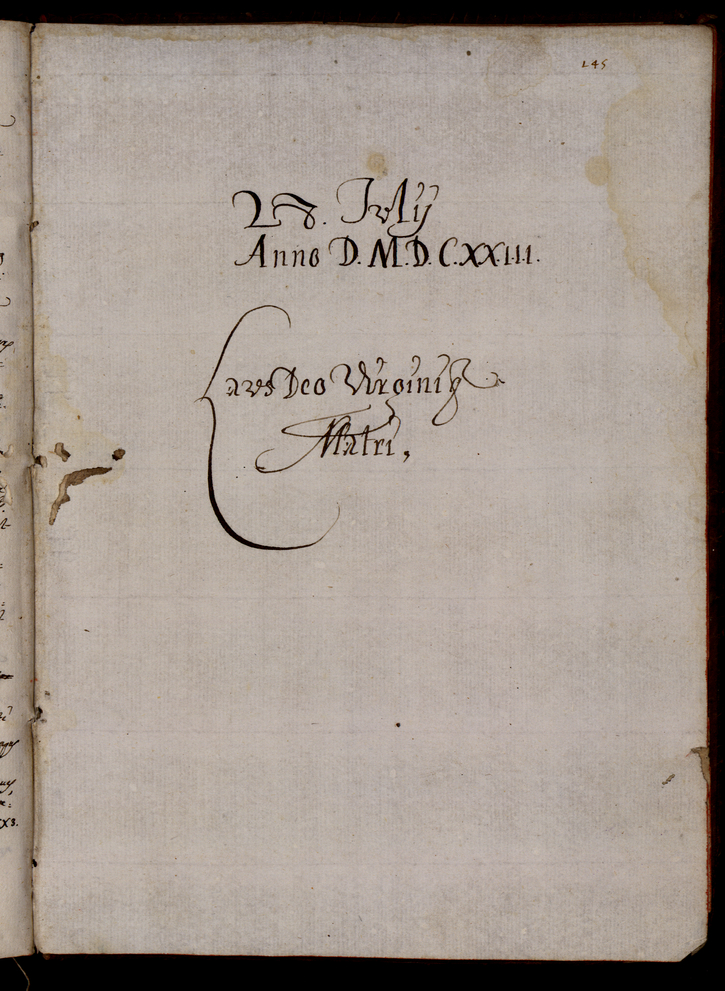 245
28. Jvlij
Anno D.M.D.C.XXIII.
Lavs Deo Virginiq
Matri,